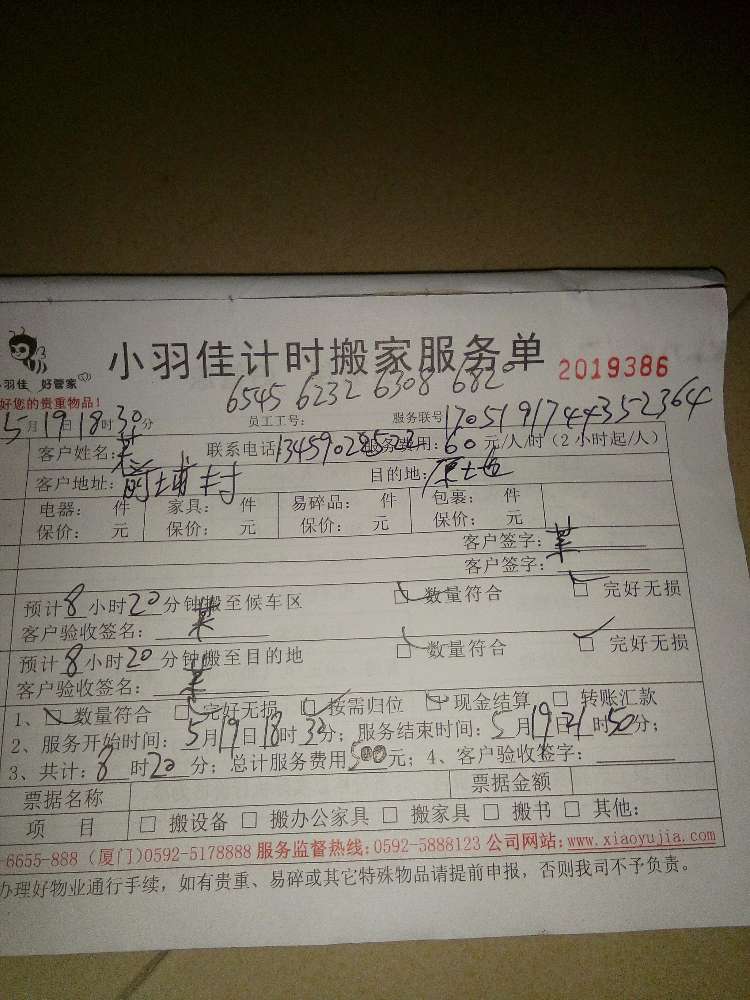 小羽佳计时搬家服务单 2019386
羽佳 好管家
好您的贵重物品!
6545 6232 6308 682
5月19日18时30分 员工工号: 服务联号17051917444352364
客户姓名: 联系电话13459028522 服务费用:60元/人/时(2小时起/人)
客户地址: 村 目的地:
电器: 件 家具: 件 易碎品: 件 包裹: 件
保价: 元 保价: 元 保价: 元 保价: 元
客户签字:
客户签字:
预计8小时20分钟搬至候车区 数量符合 完好无损
客户验收签名:
预计8小时20分钟搬至目的地 数量符合 完好无损
客户验收签名:
1、 数量符合 完好无损 按需归位 现金结算 □ 转账汇款
2、服务开始时间:5月19日18时33分; 服务结束时间:5月19日21时50分;
3、共计:8时20分; 总计服务费用500元; 4、客户验收签字:
票据名称 票据金额
项 目 □ 搬设备 □ 搬办公家具 □ 搬家具 □ 搬书 □ 其他:
-6655-888 (厦门)0592-5178888 服务监督热线:0592-5888123 公司网站:www.xiaoyujia.com
办理好物业通行手续,如有贵重、易碎或其它特殊物品请提前申报,否则我司不予负责。